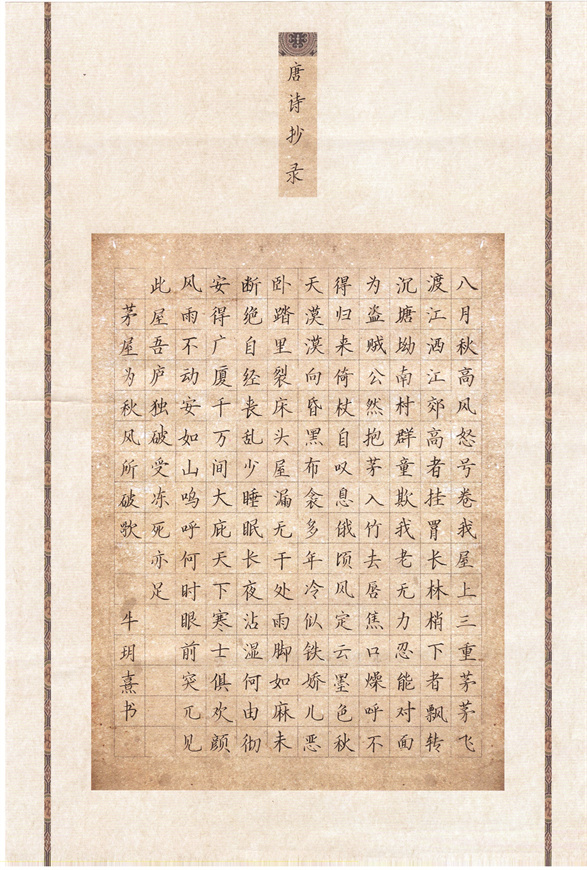 唐诗抄录
八月秋高风怒号卷我屋上三重茅茅飞
渡江洒江郊高者挂罥长林梢下者飘转
沉塘坳南村群童欺我老无力忍能对面
为盗贼公然抱茅入竹去唇焦口燥呼不
得归来倚杖自叹息俄顷风定云墨色秋
天漠漠向昏黑布衾多年冷似铁娇儿恶
卧踏里裂床头屋漏无干处雨脚如麻未
断绝自经丧乱少睡眠长夜沾湿何由彻
安得广厦千万间大庇天下寒士俱欢颜
风雨不动安如山呜呼何时眼前突兀见
此屋吾庐独破受冻死亦足
茅屋为秋风所破歌 牛玥熹书